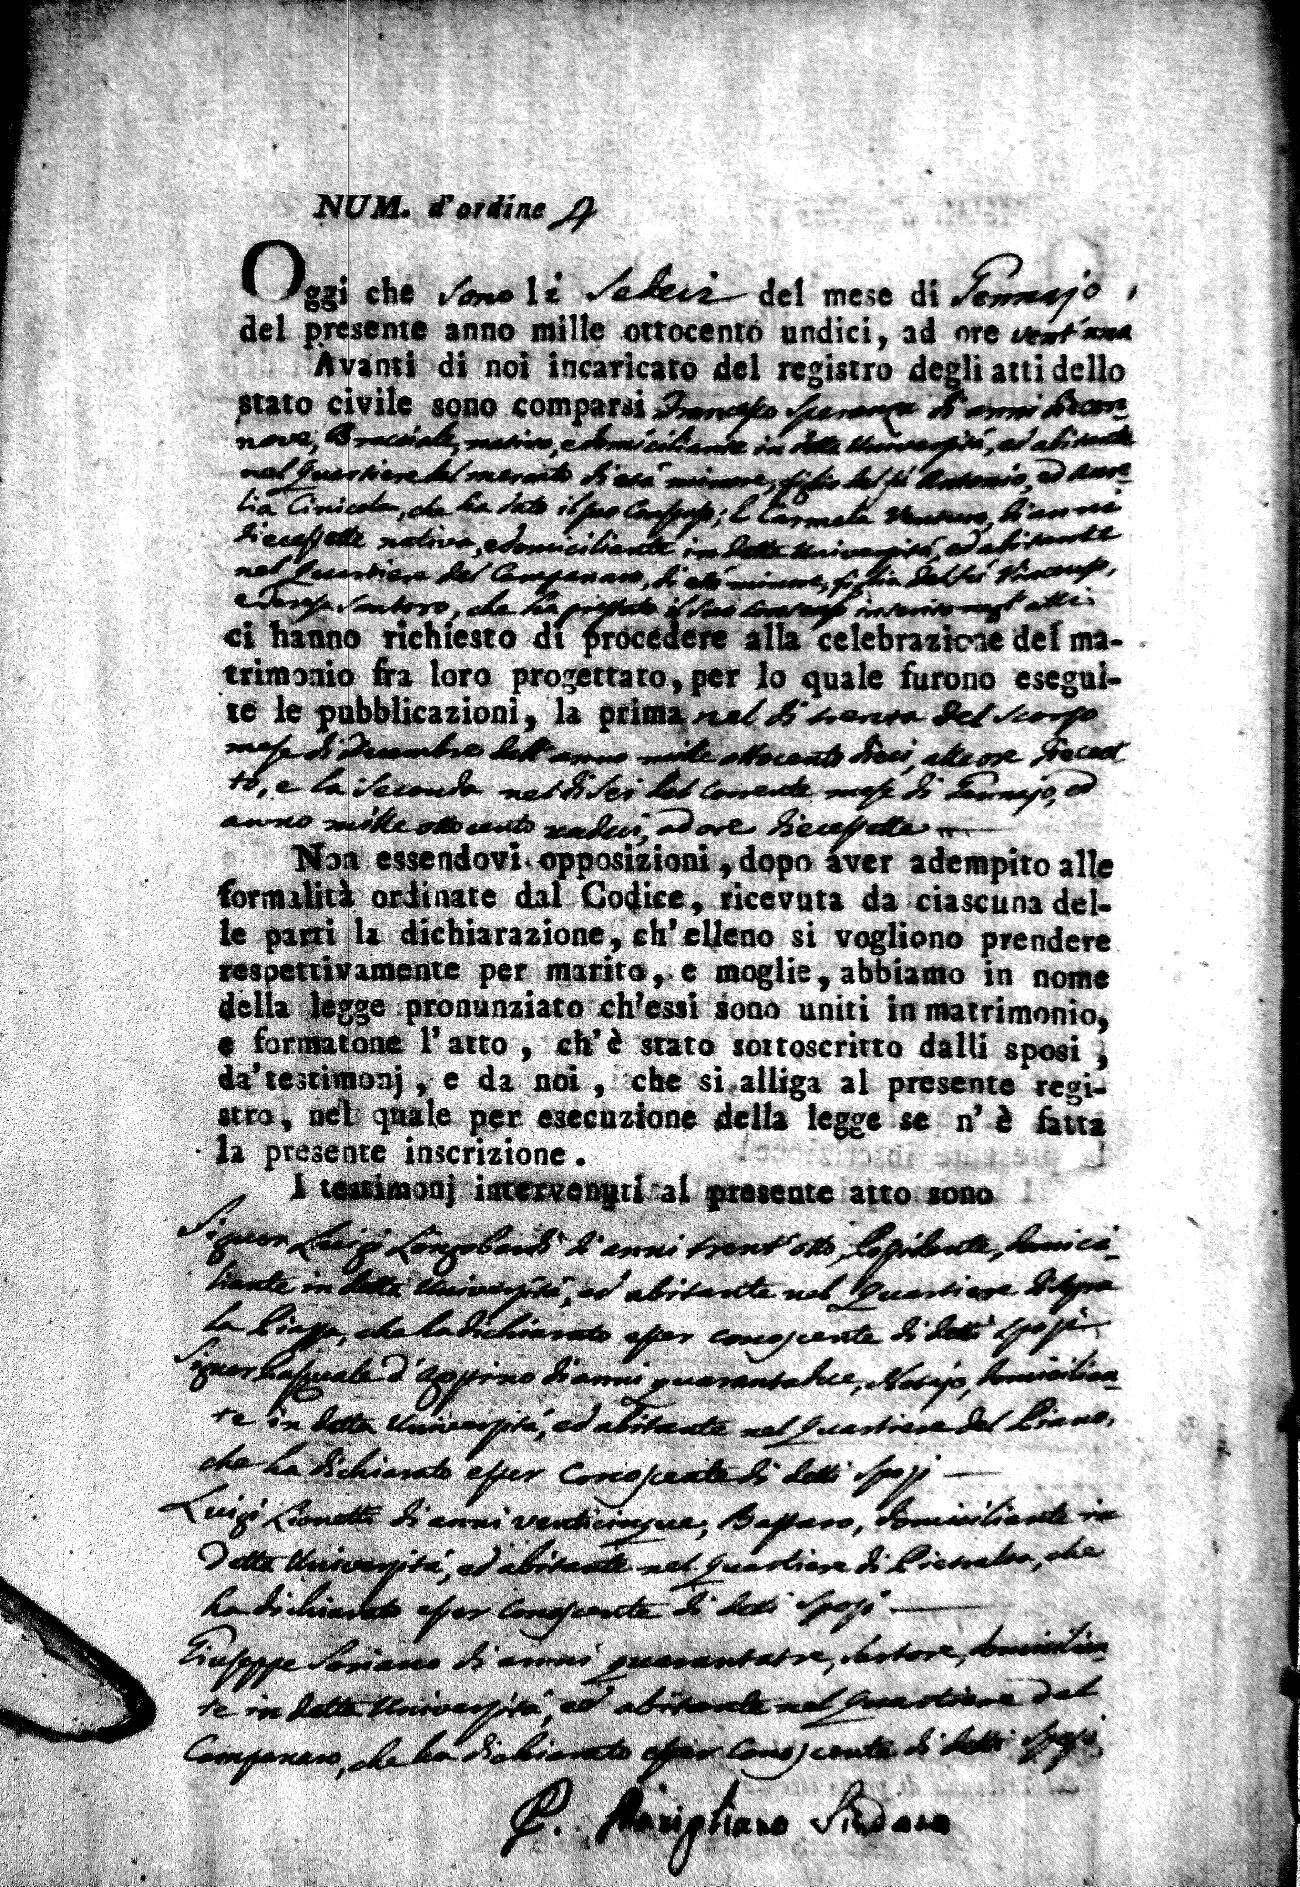 NUM. d'ordine 4
Oggi che sono li Sedeci del mese di Gennajo,
del presente anno mille ottocento undici, ad ore vent'una
Avanti di noi incaricato del registro degli atti dello
stato civile sono comparsi Francesco Speranza di anni diecan-
nove, Bracciale, nativo, e domiciliante in detta Università, ed abitante
nel Quartiere del mercato di età minore, figlio del fù Antonio, ed Aure-
lia Cinicola, che ha dato il suo Consenso; E Carmela Venturo, di anni
diecessette nativa, e domiciliante in detta Università, ed abitante
nel Quartiere del Campanaro, di età minore, figlia del fù Vincenzo,
e Teresa Santoro, che ha prestato il suo consenso
ci hanno richiesto di procedere alla celebrazione del ma-
trimonio fra loro progettato, per lo quale furono esegui-
te le pubblicazioni, la prima nel dì trenta del scorso
mese di Decembre dell'anno mille ottocento dieci, alle ore diecaot-
to, e la seconda nel dì sei del corrente mese di Gennajo, ed
anno mille ottocento undici, ad ore diecessette
Non essendovi opposizioni, dopo aver adempito alle
formalità ordinate dal Codice, ricevuta da ciascuna del-
le parti la dichiarazione, ch'elleno si vogliono prendere
respettivamente per marito, e moglie, abbiamo in nome
della legge pronunziato ch'essi sono uniti in matrimonio,
e formatone l'atto, ch'è stato sottoscritto dalli sposi,
da'testimonj, e da noi, che si alliga al presente regi-
stro, nel quale per esecuzione della legge se n'è fatta
la presente inscrizione.
I testimonj intervenuti al presente atto sono
Signor Luigi Longobardi di anni trent'otto, Possidente, domici-
liante in detta Università, ed abitante nel Quartiere di sopra
la Piazza, che ha dichiarato esser conoscente di detti sposi
Signor Pasquale d'Appino di anni quarantadue, Notajo, domicilian-
te in detta Università, ed abitante nel Quartiere del Piano,
che ha dichiarato esser Conoscente di detti sposi
Luigi Lionetti di anni venticinque, Bastaro, domiciliante in
detta Università, ed abitante nel Quartiere di che
ha dichiarato esser Conoscente di detti sposi
Giuseppe Soriano di anni quarantatre, Sartore, domicilian-
te in detta Università, ed abitante nel Quartiere del
Campanaro, che ha dichiarato esser Conoscente di detti sposi
P. Marigliano Sindaco